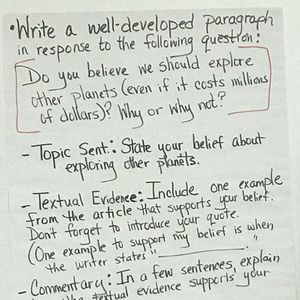 • Write a well-developed paragraph
in response to the following question:
Do you believe we should explore
other planets (even if it costs millions
of dollars)? Why or why not?
- Topic Sent.: State your belief about
exploring other planets.
- Textual Evidence: Include one example
from the article that supports your belief.
Don't forget to introduce your quote.
(One example to support my belief is when
the writer states "__________."
- Commentary: In a few sentences, explain
textual evidence supports your